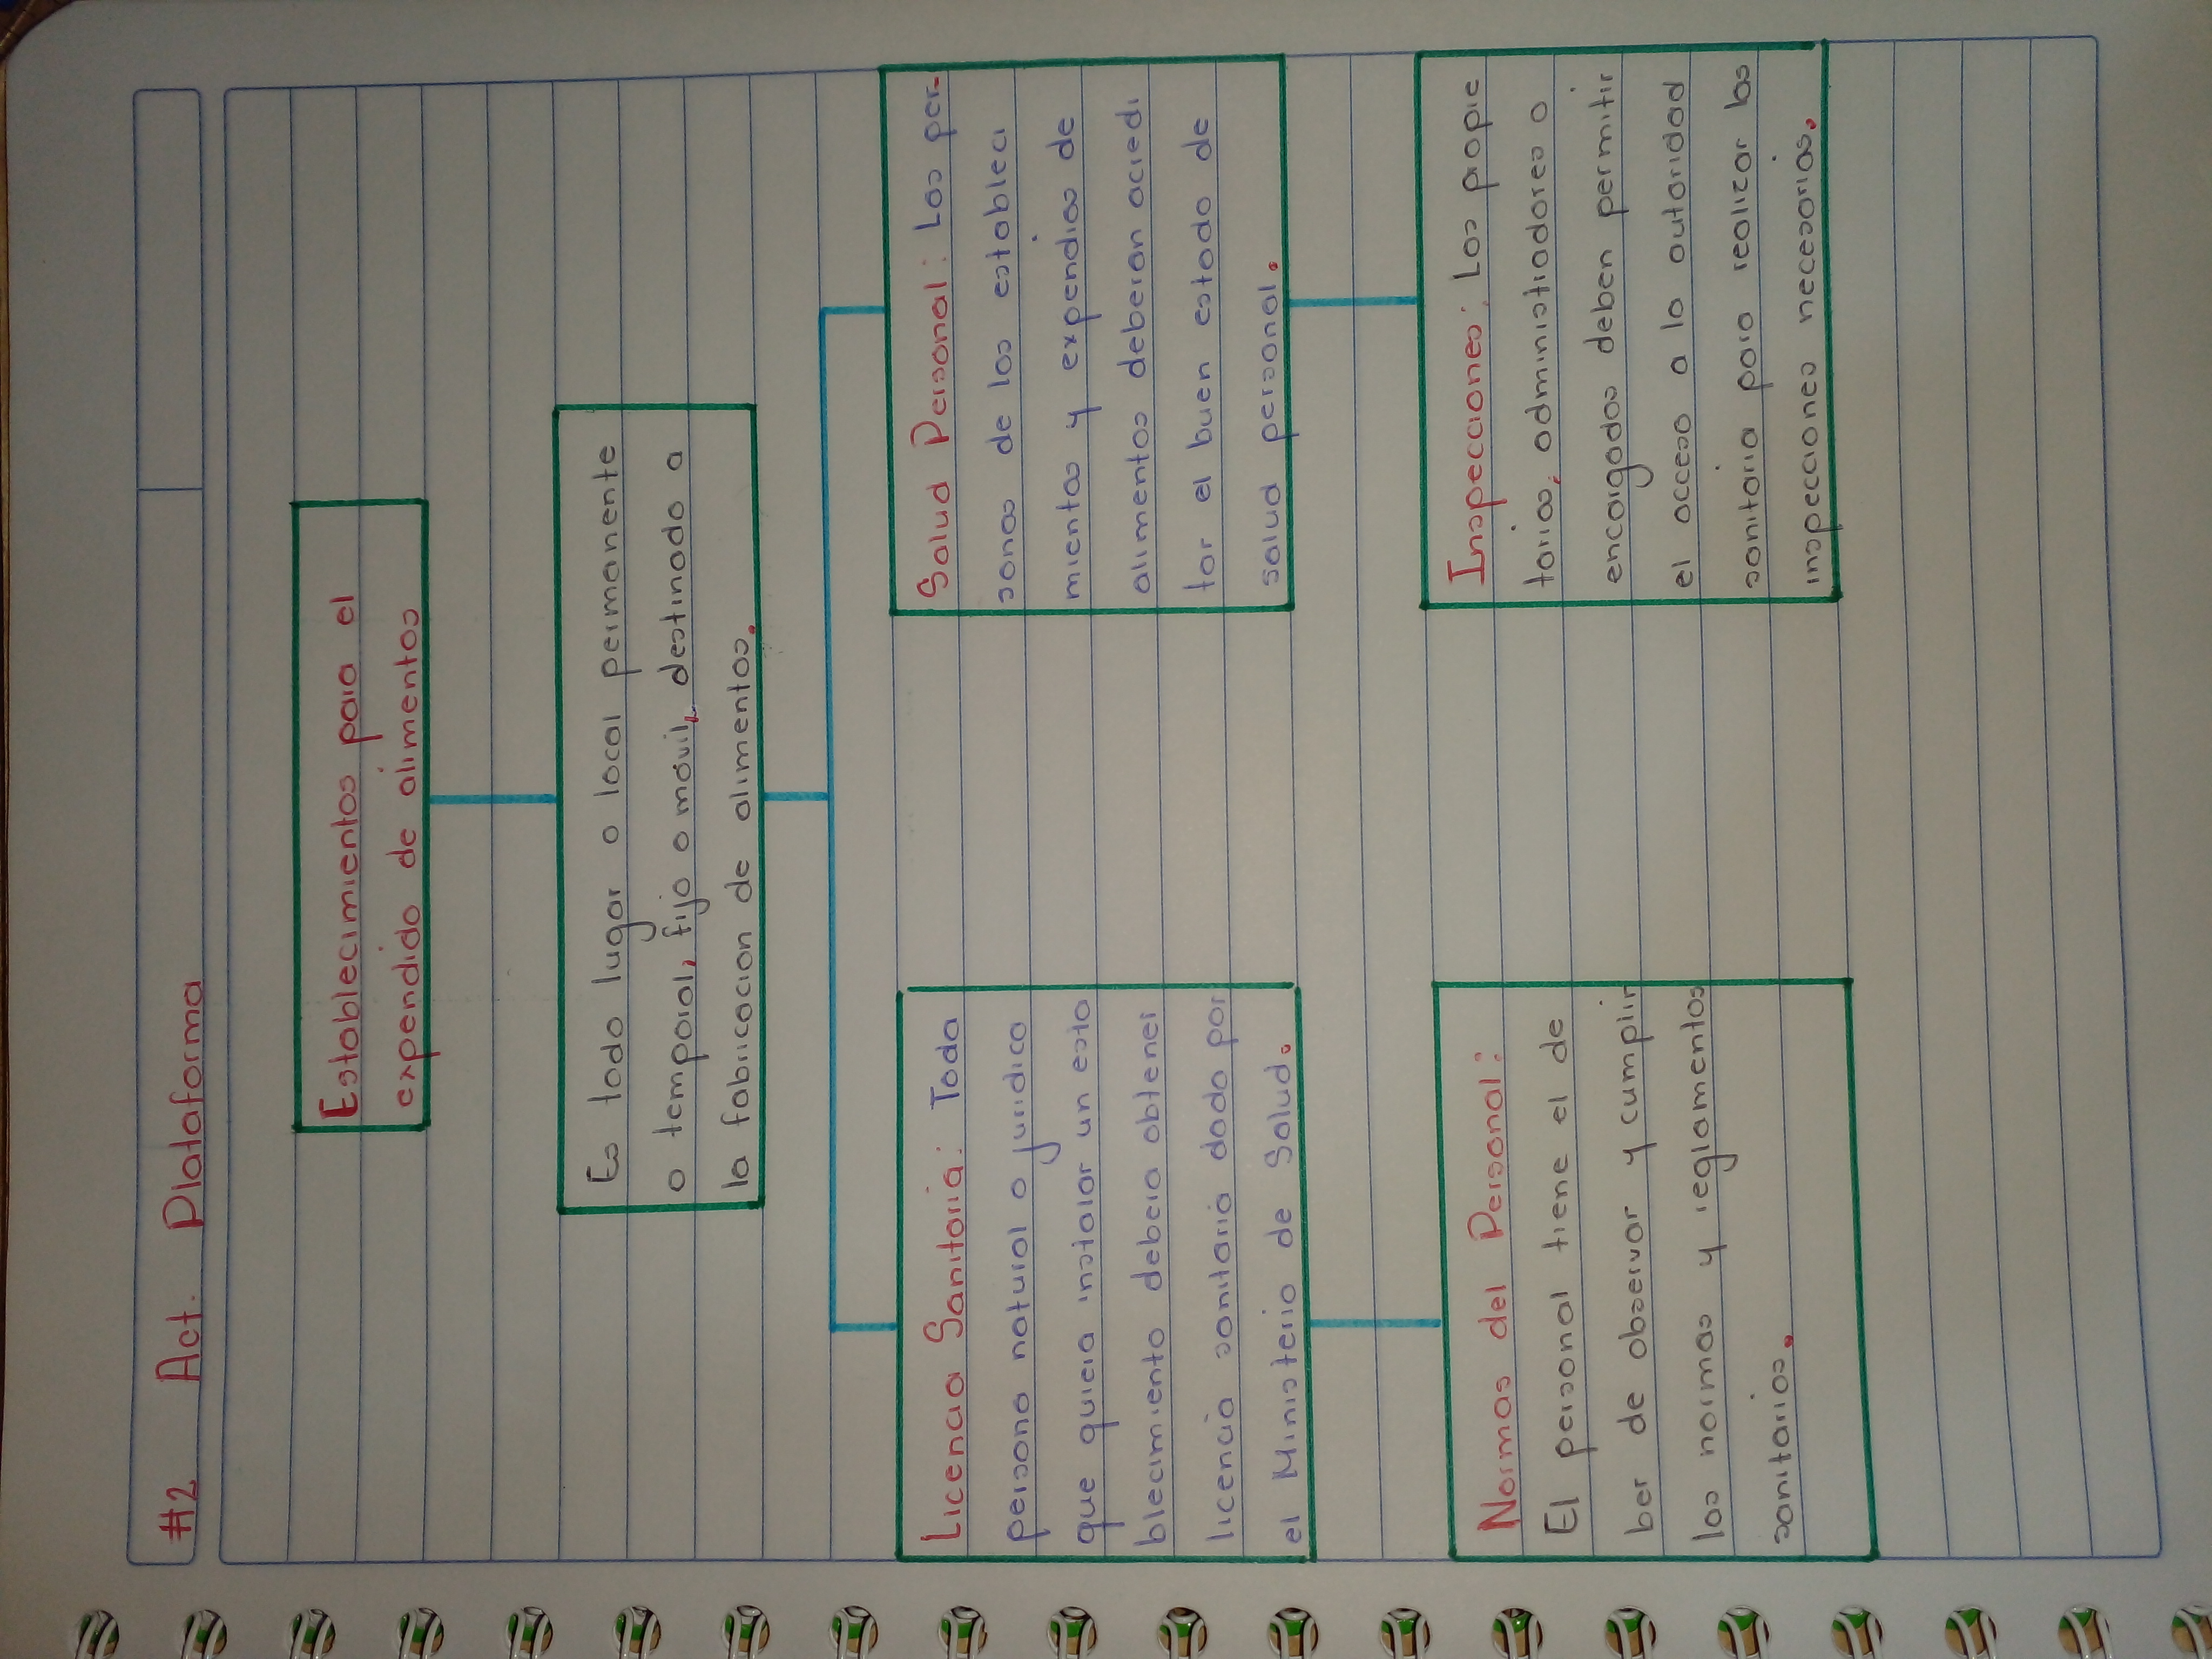 #2 Act. Plataforma
Establecimientos para el
expendido de alimentos
Es todo lugar o local permanente
o temporal, fijo o móvil, destinado a
la fabricacion de alimentos.
Licencia Sanitaria: Toda
persona natural o juridica
que quiera instalar un esta
blecimiento debera obtener
licencia sanitaria dada por
el Ministerio de Salud.
Salud Personal: Las per-
sonas de los estableci
mientos y expendios de
alimentos deberan acredi
tar el buen estado de
salud personal.
Normas del Personal:
El personal tiene el de
ber de observar y cumplir
las normas y reglamentos
sanitarios.
Inspecciones: Los propie
tarios, administradores o
encargados deben permitir
el acceso a la autoridad
sanitaria para realizar las
inspecciones necesarias.